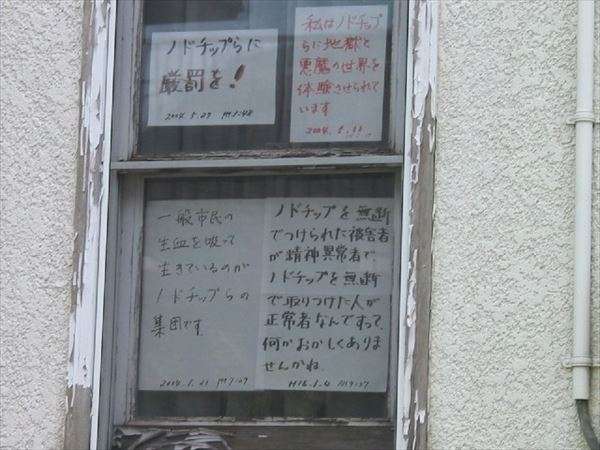 ノドチップらに
厳罰を！
2004.5.27
私はノドチップ
らに地獄と
悪魔の世界を
体験させられて
います
一般市民の
生血を吸って
生きているのが
ノドチップらの
集団です.
ノドチップを無断
でつけられた被害者
が精神異常者で、
ノドチップを無断
で取りつけた人が
正常者なんですって、
何かおかしくありま
せんかね.
H16.1.4